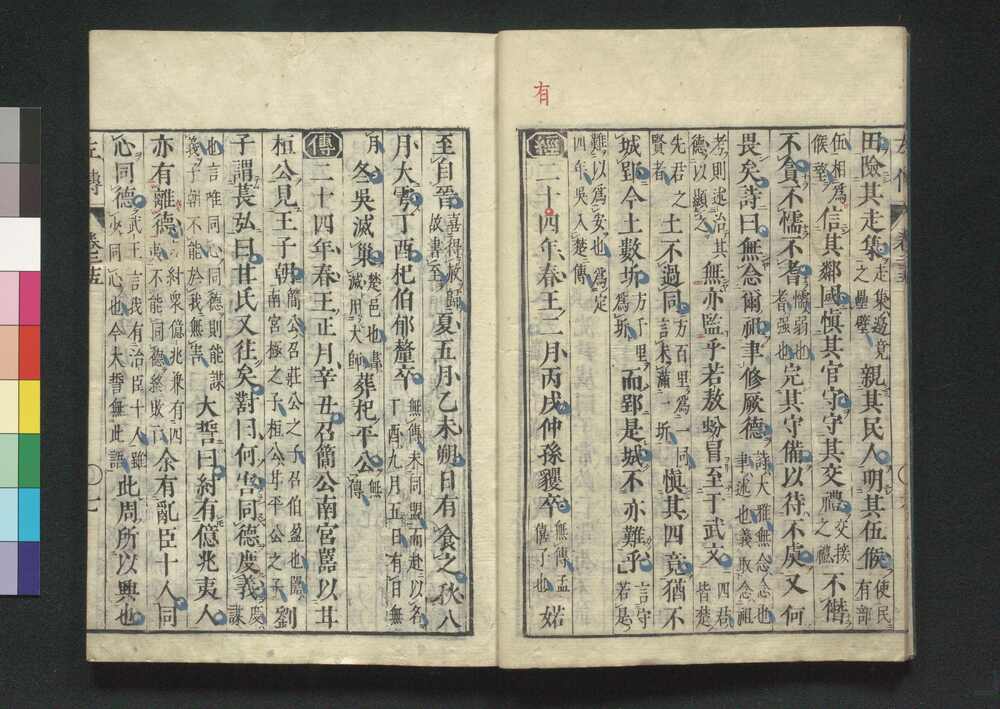 有
田險其走集走集邊竟之壘壁親其民人明其伍候使民有部
伍相為候望信其鄰國慎其官守守其交禮交接之禮不僭
不貪不懦不耆懦弱也耆强也完其守備以待不虞又何
畏矣詩曰無念爾祖聿修厥德詩大雅無念念也聿述也義取念祖
考則述治其德以顯之無亦監乎若敖蚡冒至于武文四君皆楚
先君之賢者土不過同方百里為一同言未滿一圻慎其四竟猶不
城郢今土數圻方千里為圻而郢是城不亦難乎言守若是
難以為安也為定四年吳入楚傳
經二十四年春王二月丙戌仲孫貜卒無傳孟僖子也婼
至自晉喜得赦歸故書至夏五月乙未朔日有食之秋八
月大雩丁酉杞伯郁釐卒無傳未同盟而赴以名丁酉九月五日有日無
月冬吳滅巢楚邑也書滅用大師葬杞平公無傳
傳二十四年春王正月辛丑召簡公南宮嚚以甘
桓公見王子朝簡公召莊公之子召伯盈也嚚南宮極之子桓公甘平公之子劉
子謂萇弘曰甘氏又往矣對曰何害同德度義度謀
也言唯同心同德則能謀義子朝不能於我無害大誓曰紂有億兆夷人
亦有離德紂衆億兆兼有四夷不能同德終敗亡余有亂臣十人同
心同德武王言我有治臣十人雖少同心也今大誓無此語此周所以興也
左傳